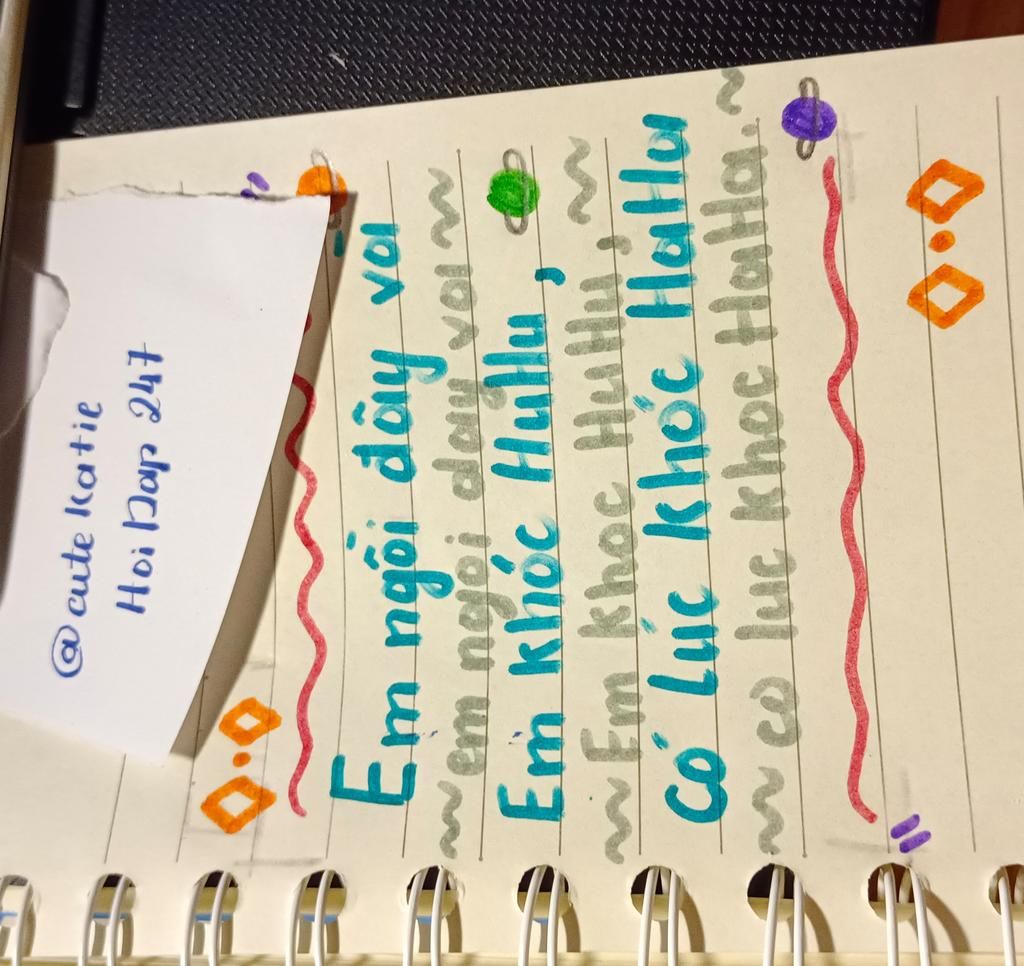 @cute Katie
Hoi Dap 247
Em ngồi đây vơi
em ngoi day voi
Em khóc HuHu,
Em khoc HuHu,
Có Lúc Khóc HaHa
co luc khoc HaHa.